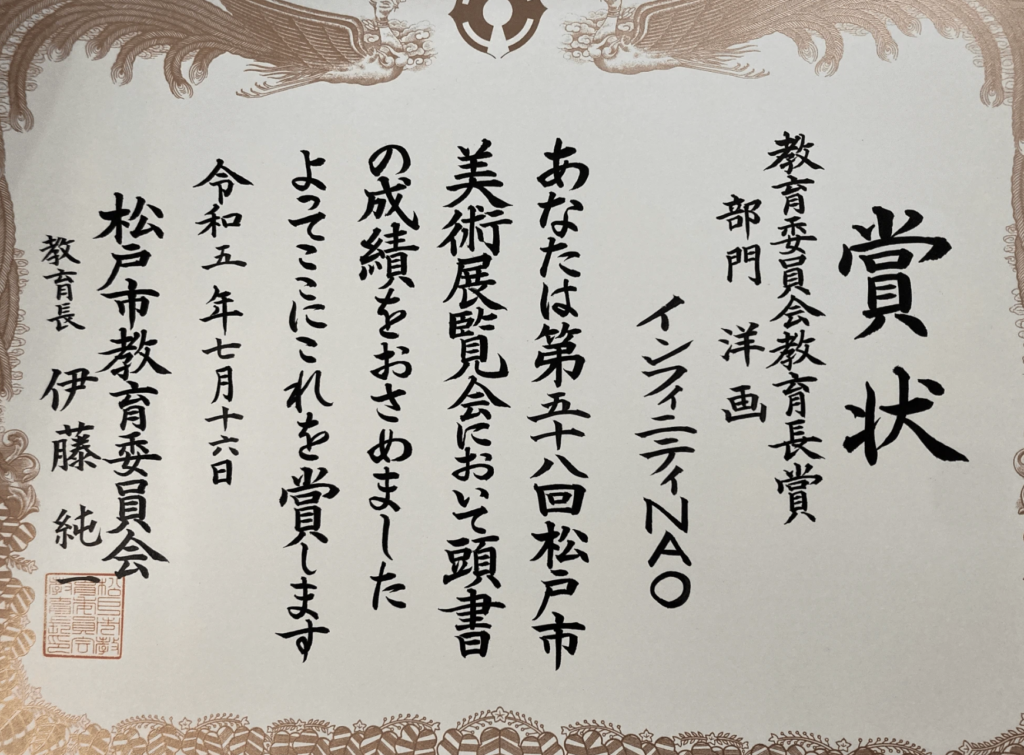 賞状
教育委員会教育長賞
部門 洋画
インフィニティNAO
あなたは第五十八回松戸市
美術展覧会において頭書
の成績をおさめました
よってここにこれを賞します
令和五年七月十六日
松戸市教育委員会
教育長 伊藤純一